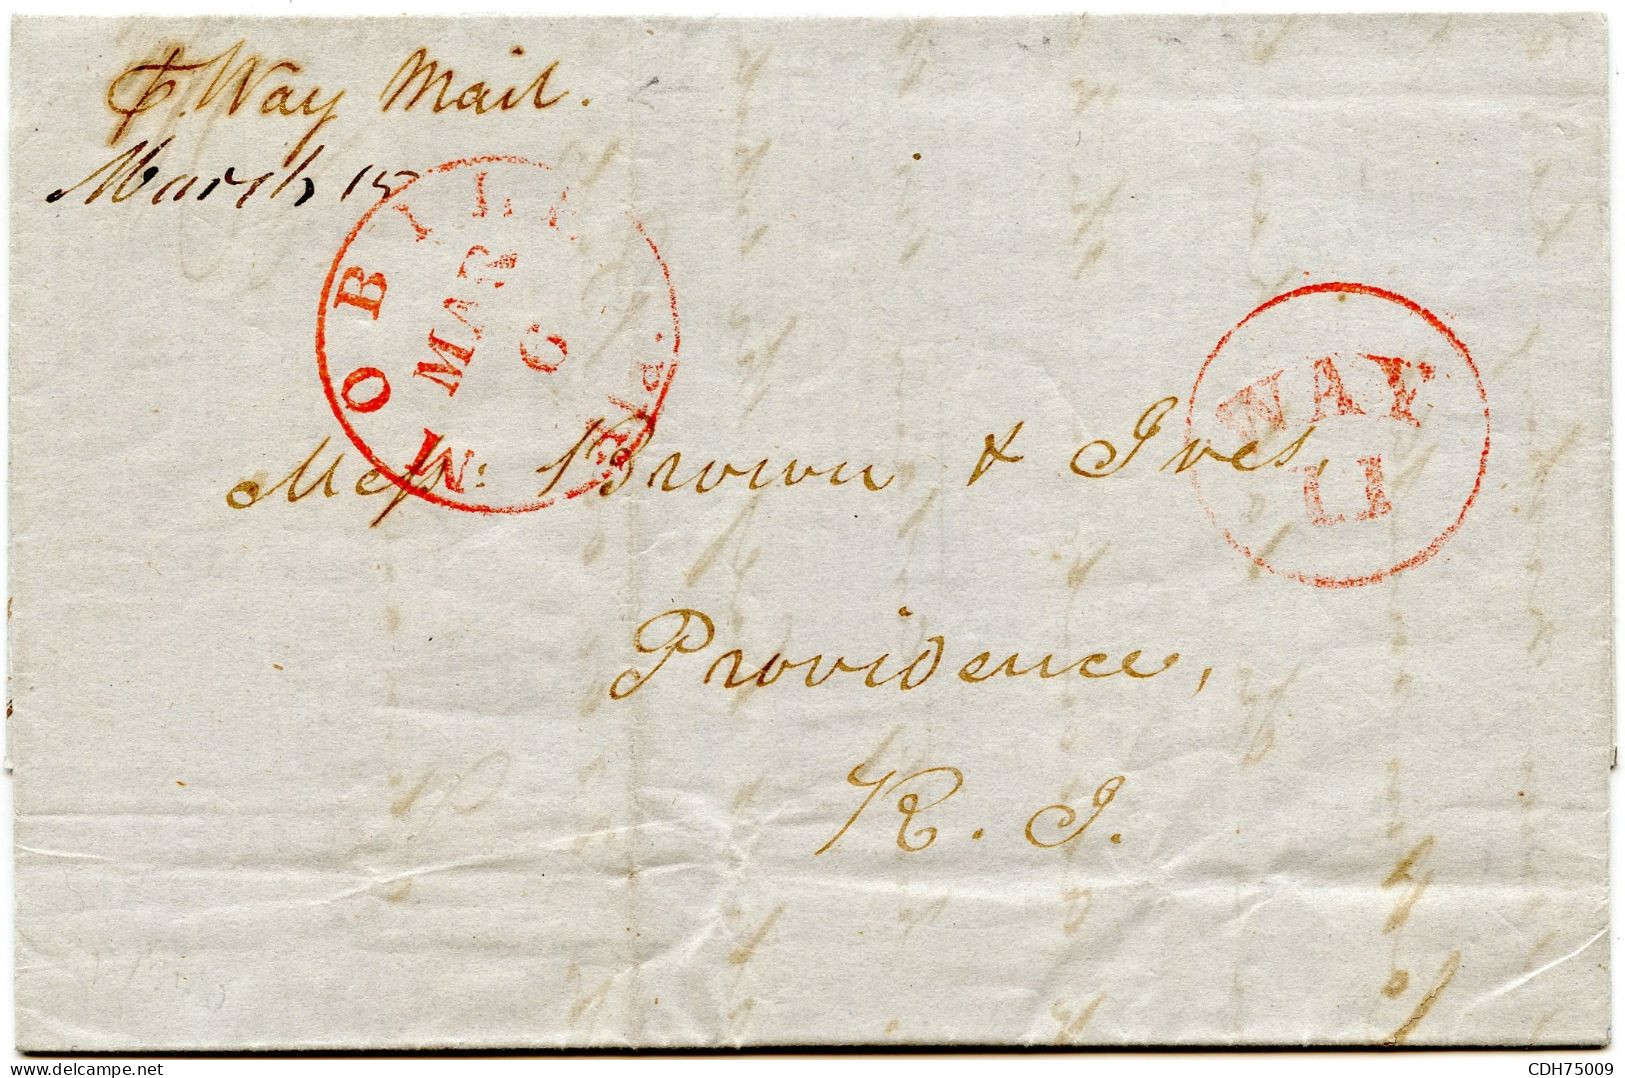 ₱. Way Mail.
March 15
MOBILE
MAR
6
Ala.
WAY
11
Mess: Brown & Ives,
Providence,
R. I.
CDH75009